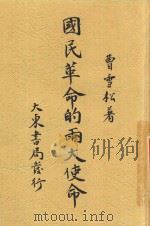 曹雪松著
國民革命的兩大使命
大東書局發行
www.mtoou.info